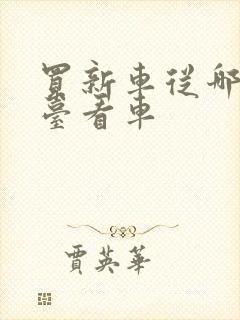 買新車從哪
臺看車
賈英華